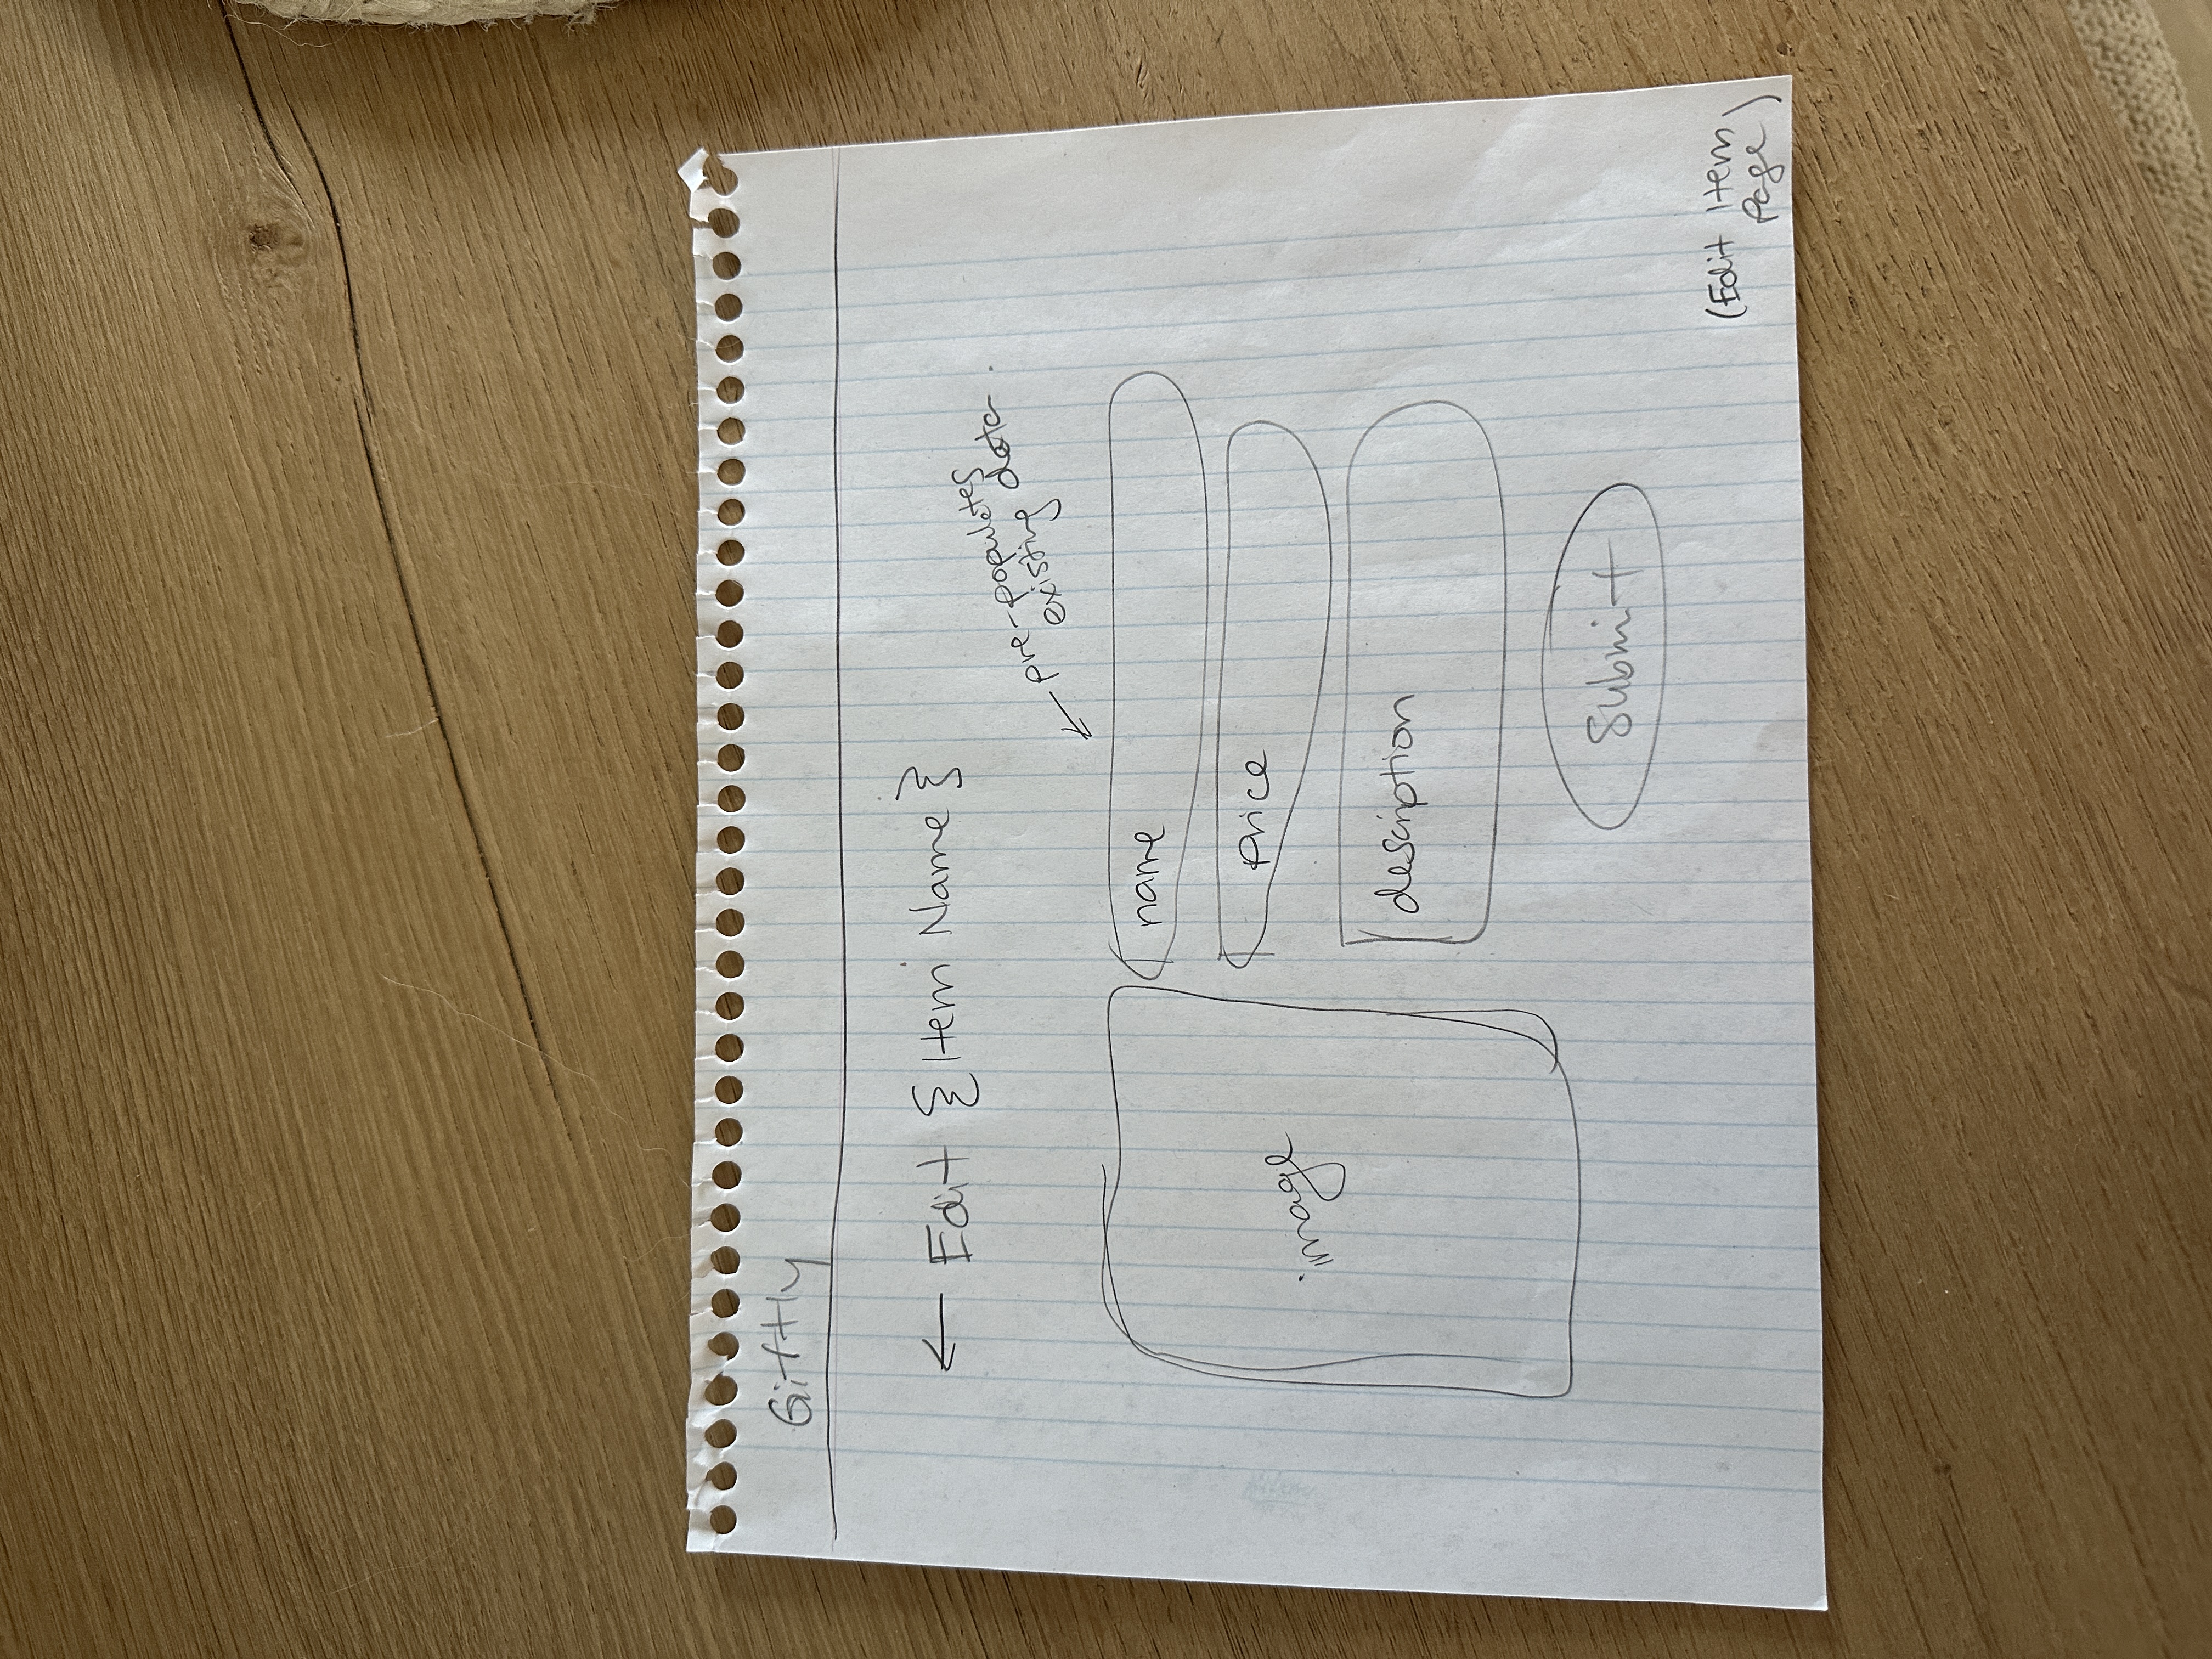 Giftly
← Edit {Item Name}
pre-populates
existing data.
name
price
image
description
Submit
(Edit Item
Page)